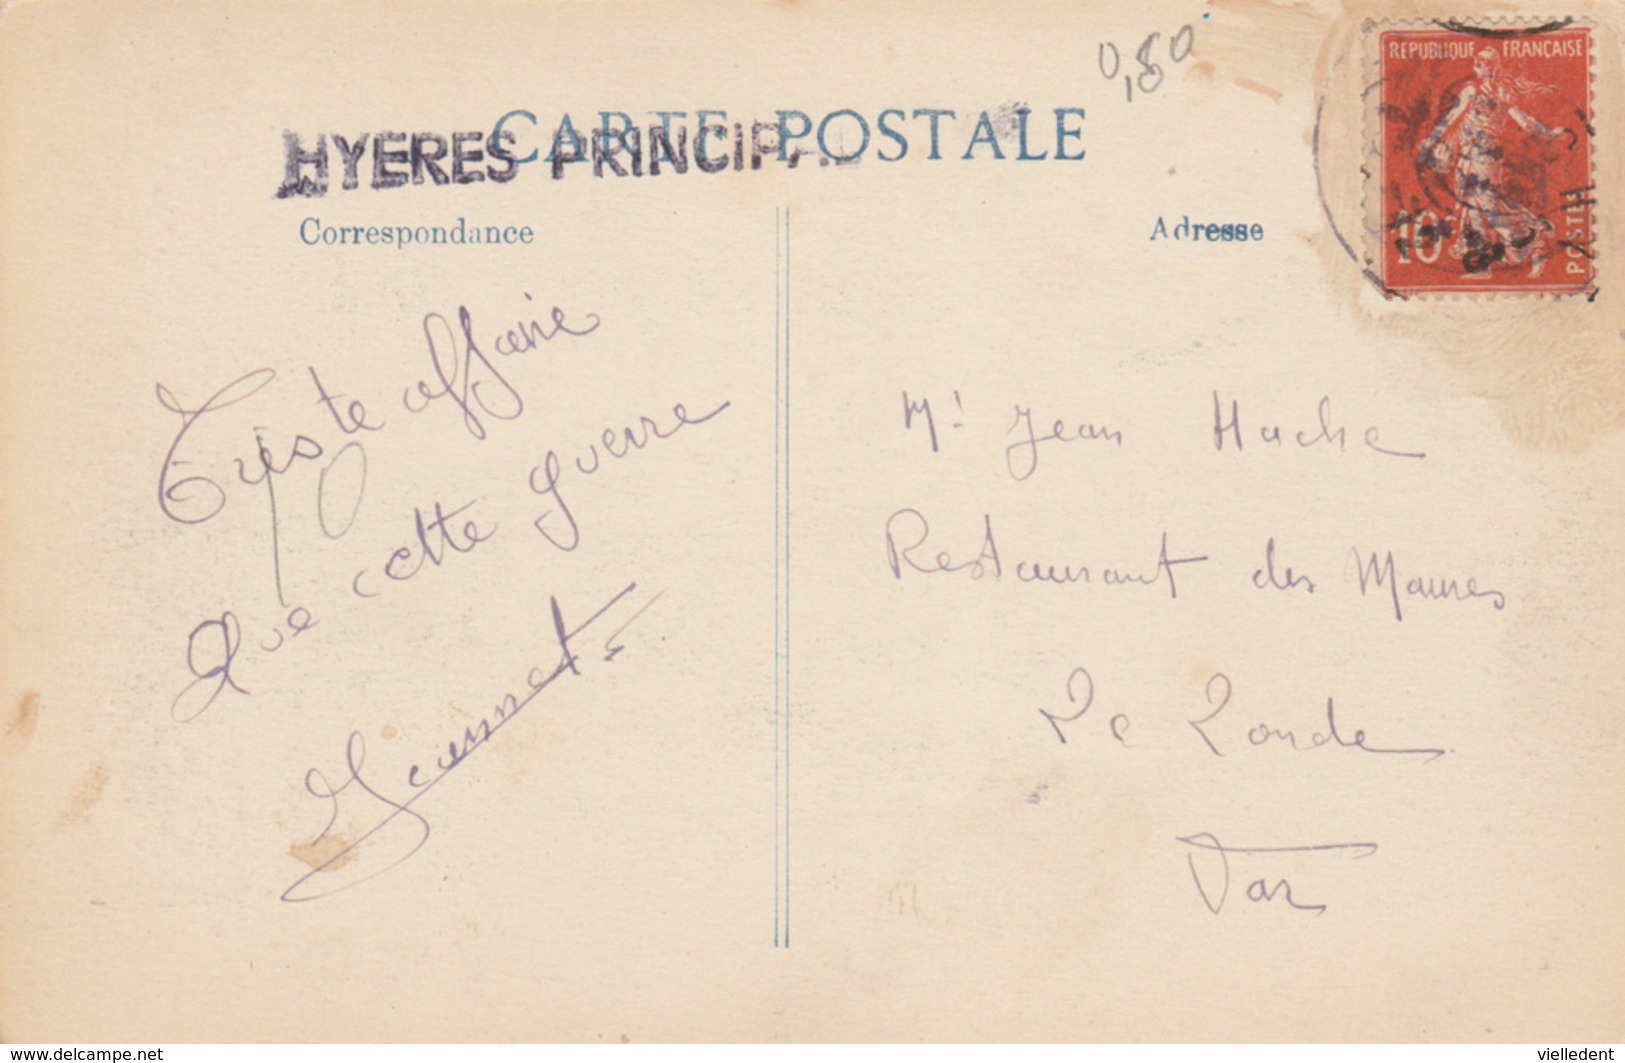 0,80
RÉPUBLIQUE FRANÇAISE
10
POSTES
CARTE POSTALE
HYERES PRINCIPAL
Correspondance
Adresse
Triste affaire
que cette guerre
Jeannet
Mr Jean Hache
Restaurant des Maures
La Londe
Var
www.delcampe.net
vielledent